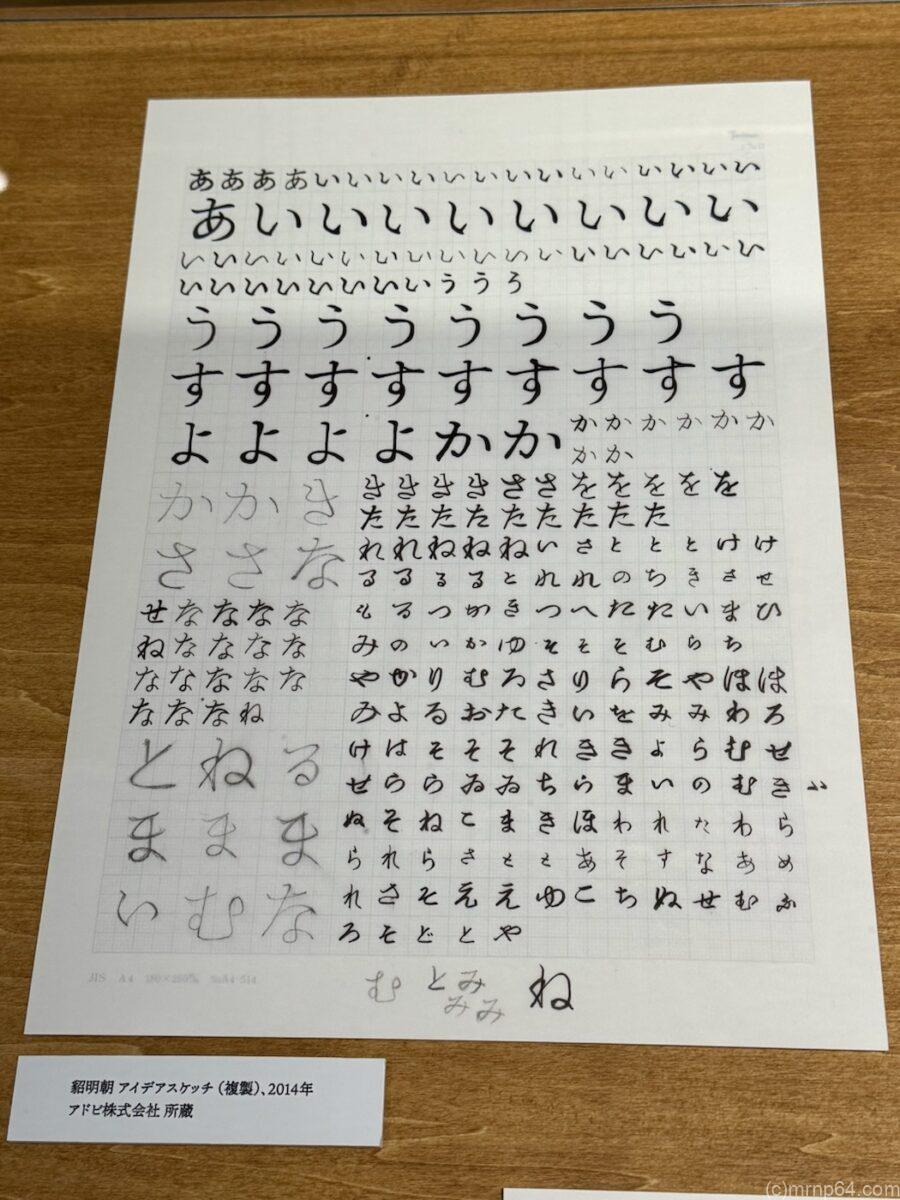 ああああいいいいいいいいいいいいいい
あいいいいいいいい
いいいいいいいいいいいいいいいいいい
いいいいいいいいううろ
うううううううう
すすすすすすすすす
よよよよかか
かかかかかか
かか
かかき
ささな
せなななな
ねなななな
ななななな
なななね
とねる
ままま
いむな
ききききささををををを
たたたたたたたたた
れれねねねいさとととけけ
るるるるとれれのちきさせ
もるつかきつへたたいまひ
みのいかゆそそそむらち
やかりむろさりらそやはは
みよるおたきいをみみわろ
けはそそそれききよらむせ
せららゐゐちらまいのむき
ぬそねこまきほわれたわら
られらさととあそすなあめ
れさそええゆこちぬせむふ
ろそどとや
むとみ
みみ
ね
JIS A4
貂明朝 アイデアスケッチ（複製）、2014年
アドビ株式会社 所蔵
(c)mrnp64.com